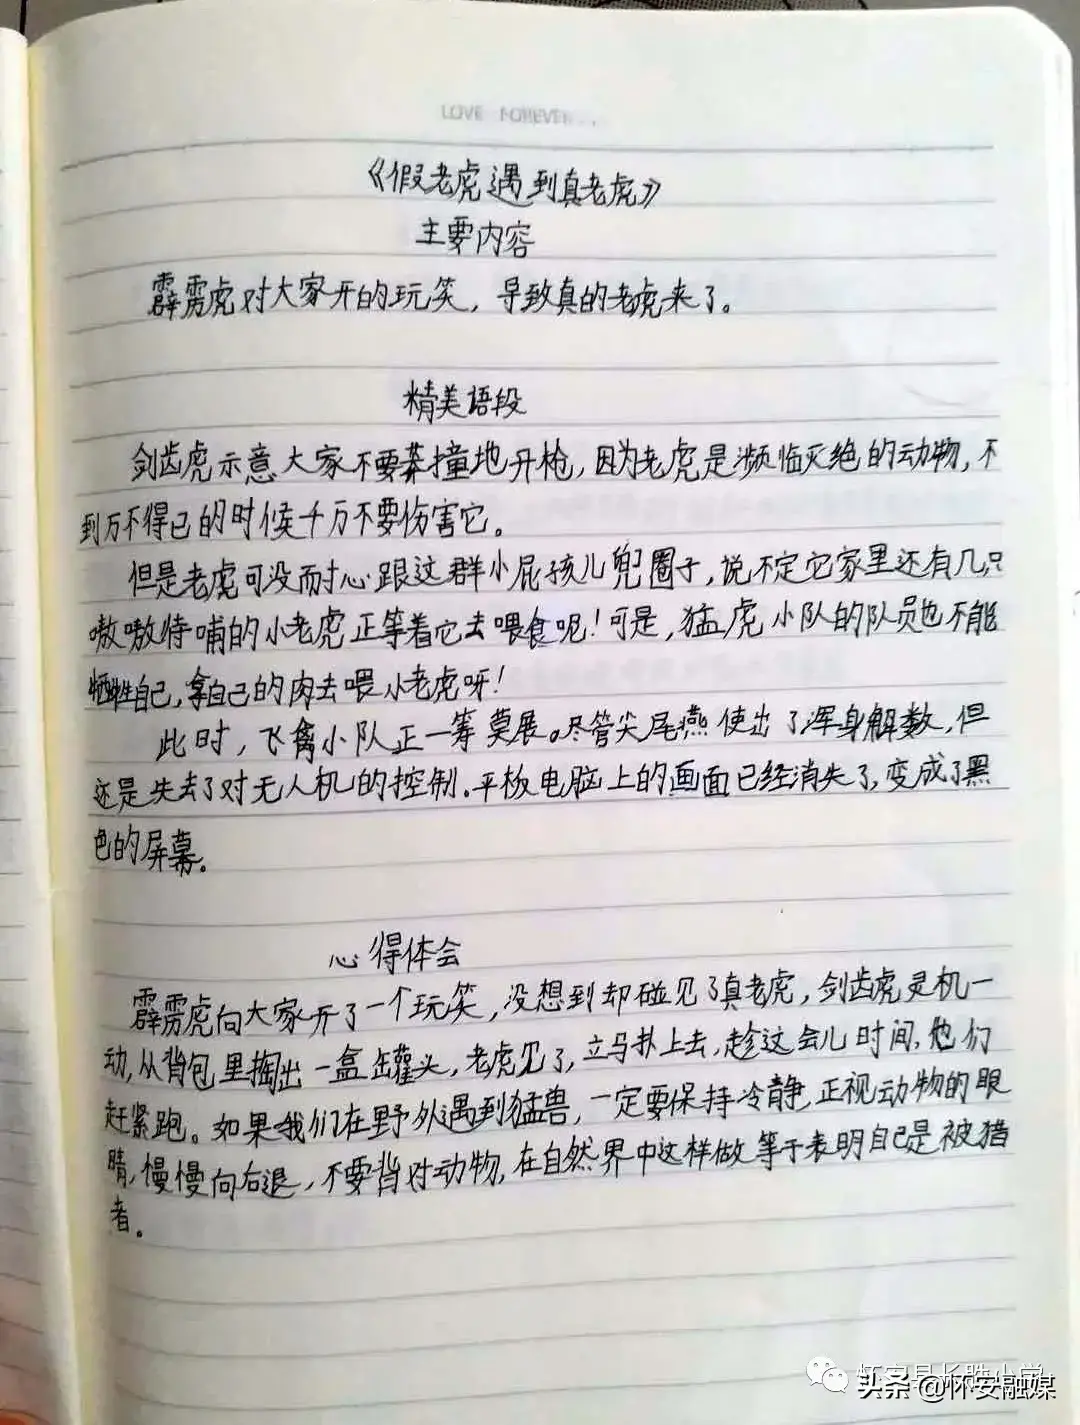 LOVE FOREVER...
《假老虎遇到真老虎》
主要内容
霹雳虎对大家开的玩笑，导致真的老虎来了。
精美语段
剑齿虎示意大家不要莽撞地开枪，因为老虎是濒临灭绝的动物，不
到万不得已的时候千万不要伤害它。
但是老虎可没耐心跟这群小屁孩儿兜圈子，说不定它家里还有几只
嗷嗷待哺的小老虎正等着它去喂食呢！可是，猛虎小队的队员也不能
牺牲自己，拿自己的肉去喂小老虎呀！
此时，飞禽小队正一筹莫展。尽管尖尾燕使出了浑身解数，但
还是失去了对无人机的控制。平板电脑上的画面已经消失了，变成了黑
色的屏幕。
心得体会
霹雳虎向大家开了一个玩笑，没想到却碰见了真老虎，剑齿虎灵机一
动，从背包里掏出一盒罐头，老虎见了，立马扑上去，趁这会儿时间，他们
赶紧跑。如果我们在野外遇到猛兽，一定要保持冷静，正视动物的眼
睛，慢慢向后退，不要背对动物，在自然界中这样做等于表明自己是被猎
者。
怀安县长胜小学
头条 @怀安融媒